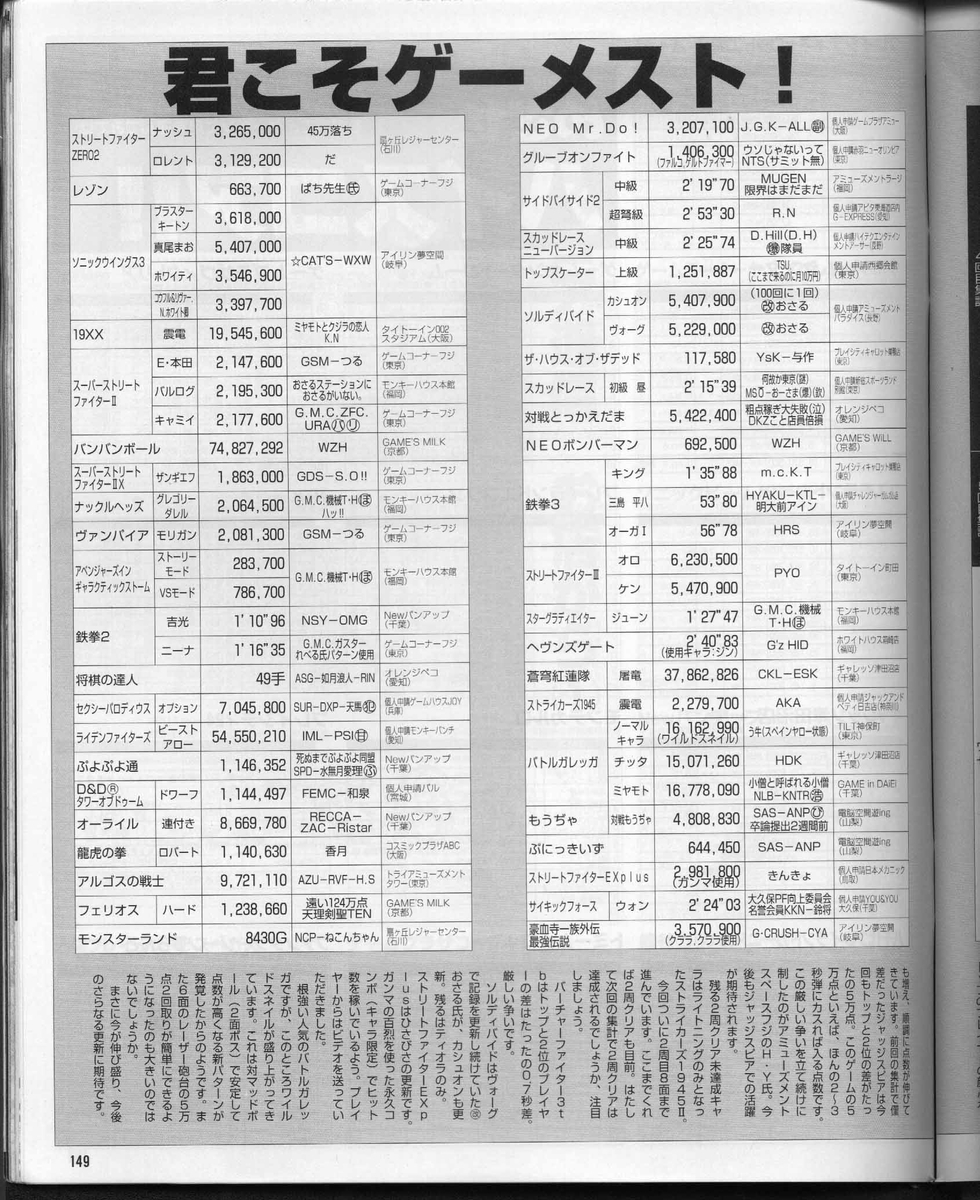 君こそゲーメスト！
ストリートファイターZERO2 ナッシュ 3,265,000 45万落ち 扇ヶ丘レジャーセンター(石川)
ロレント 3,129,200 だ
レゾン 663,700 ぱち先生㊓ ゲームコーナーフジ(東京)
ソニックウイングス3 ブラスターキートン 3,618,000 ☆CAT'S-WXW アイリン夢空間(岐阜)
真尾まお 5,407,000
ホワイティ 3,546,900
3,397,700
19XX 震電 19,545,600 ミヤモトとクジラの恋人K.N タイトーイン002スタジアム(大阪)
スーパーストリートファイターⅡ E・本田 2,147,600 GSM-つる ゲームコーナーフジ(東京)
バルログ 2,195,300 おさるステーションにおさるがいない。 モンキーハウス本館(福岡)
キャミイ 2,177,600 G.M.C.ZFC.URA ゲームコーナーフジ(東京)
バンバンボール 74,827,292 WZH GAME'S MILK(京都)
スーパーストリートファイターⅡX ザンギエフ 1,863,000 GDS-S.O!! ゲームコーナーフジ(東京)
ナックルヘッズ グレゴリーダレル 2,064,500 G.M.C.機械T・H(ほ)ハッ!! モンキーハウス本館(福岡)
ヴァンパイア モリガン 2,081,300 GSM-つる ゲームコーナーフジ(東京)
アベンジャーズインギャラクティックストーム ストーリーモード 283,700 G.M.C.機械T・H(ほ) モンキーハウス本館(福岡)
VSモード 786,700
鉄拳2 吉光 1'10"96 NSY-OMG Newバンアップ(千葉)
ニーナ 1'16"35 G.M.C.ガスターれべる氏パターン使用 ゲームコーナーフジ(東京)
将棋の達人 49手 ASG-如月浪人-RIN オレンジペコ(愛知)
セクシーパロディウス オプション 7,045,800 SUR-DXP-天馬 個人申請ゲームハウスJOY(兵庫)
ライデンファイターズ ビーストアロー 54,550,210 IML-PSI 個人申請モンキーパンチ(愛知)
ぷよぷよ通 1,146,352 死ぬまでぷよぷよ同盟SPD-水無月愛理(ぷ) Newバンアップ(千葉)
D&DⓇタワーオブドゥーム ドワーフ 1,144,497 FEMC-和泉 個人申請パル(宮城)
オーライル 連付き 8,669,780 RECCA-ZAC-Ristar Newバンアップ(千葉)
龍虎の拳 ロバート 1,140,630 香月 コスミックプラザABC(大阪)
アルゴスの戦士 9,721,110 AZU-RVF-H.S トライアミューズメントタワー(東京)
フェリオス ハード 1,238,660 遠い124万点天理剣聖TEN GAME'S MILK(京都)
モンスターランド 8430G NCP-ねこんちゃん 扇ヶ丘レジャーセンター(石川)
NEO Mr.Do! 3,207,100 J.G.K-ALL 個人申請ゲームプラザアミュー(大阪)
グルーブオンファイト 1,406,300(ファルコ,ゲルトファイマー) ウソじゃないってNTS(サミット無) 個人申請赤羽ニューオリンピア(東京)
サイドバイサイド2 中級 2'19"70 MUGEN限界はまだまだ アミューズメントラージ(福岡)
超弩級 2'53"30 R.N 個人申請アピタ東海荒尾店内G-EXPRESS(愛知)
スカッドレースニューバージョン 中級 2'25"74 D.Hill(D.H)(爆)隊員
トップスケーター 上級 1,251,887 TSU.(ここまで来るのに月10万円) 個人申請西郷会館(東京)
ソルディバイド カシュオン 5,407,900 (100回に1回)(改)おさる 個人申請アミューズメントパラダイス(長野)
ヴォーグ 5,229,000 (改)おさる
ザ・ハウス・オブ・ザデッド 117,580 YsK-与作 プレイシティキャロット巣鴨店(東京)
スカッドレース 初級 昼 2'15"39 何故か東京(謎)MSŪ-おーさま(爆)(欽) 個人申請新宿スポーツランド別館(東京)
対戦とっかえだま 5,422,400 粗点稼ぎ大失敗(泣)DKZこと店員倍損 オレンジペコ(愛知)
NEOボンバーマン 692,500 WZH GAME'S WiLL(京都)
鉄拳3 キング 1'35"88 m.c.K.T プレイシティキャロット巣鴨店(東京)
三島 平八 53"80 HYAKU-KTL-明大前アイン
オーガⅠ 56"78 HRS アイリン夢空間(岐阜)
ストリートファイターⅢ オロ 6,230,500 PYO タイトーイン町田(東京)
ケン 5,470,900
スターグラディエイター ジューン 1'27"47 G.M.C.機械T・H(ほ) モンキーハウス本館(福岡)
ヘヴンズゲート 2'40"83(使用キャラ:ジン) G'z HID ホワイトハウス箱崎店(福岡)
蒼穹紅蓮隊 屠竜 37,862,826 CKL-ESK ギャレッソ津田沼店(千葉)
ストライカーズ1945 震電 2,279,700 AKA 個人申請ジャックアンドベティ日吉店(神奈川)
バトルガレッガ ノーマルキャラ 16,162,990(ワイルドスネイル) う*(スペインヤロー状態) TILT神保町(東京)
チッタ 15,071,260 HDK ギャレッソ津田沼店(千葉)
ミヤモト 16,778,090 小僧と呼ばれる小僧NLB-KNTR(浩) GAME in DAIEI(千葉)
もうぢゃ 対戦もうぢゃ 4,808,830 SAS-ANP(ぴ)卒論提出2週間前 電脳空間遊ing(山梨)
ぷにっきいず 644,450 SAS-ANP 電脳空間遊ing(山梨)
ストリートファイターEXplus 2,981,800(ガンマ使用) きんきょ 個人申請日本メカニック(鳥取)
サイキックフォース ウォン 2'24"03 大久保PF向上委員会名誉会員KKN-鈴将 個人申請YOU&YOU大久保(千葉)
豪血寺一族外伝最強伝説 3,570,900(クララ,クララ使用) G・CRUSH-CYA アイリン夢空間(岐阜)
も増え、順調に点数が伸びて
きています。前回の集計で僅
差だったジャッジスピアは今
回もトップと2位の差がたっ
たの5万点。このゲームの5
万点といえば、ほんの2〜3
秒弾にカスれば入る点数です。
この厳しい争いを立て続けに
制したのがアミューズメント
スペースフジのH・Y氏。今
後もジャッジスピアでの活躍
が期待されます。
残る2周クリア未達成キャ
ラはライトニングのみとなっ
たストライカーズ1945Ⅱ。
今回ついに2周目8面まで
進んでいます。ここまでくれ
ば2周クリアも目前。はたし
て次回の集計で2周クリアは
達成されるでしょうか、注目
しましょう。
バーチャーファイター3t
bはトップと2位のプレイヤ
ーの差はたったの0.7秒差。
厳しい争いです。
ソルディバイドはヴォーグ
で記録を更新し続けていた(改)
おさる氏が、カシュオンも更
新。残るはティオラのみ。
ストリートファイターEXp
lusはひさびさの更新です。
ガンマの百烈を使った永久コ
ンボ(キャラ限定)でヒット
数を稼いでいるよう。プレイ
ヤーからはビデオを送ってい
ただきました。
根強い人気のバトルガレッ
ガですが、このところワイル
ドスネイルが盛り上がってき
ています。これは対マッドボ
ール(2面ボス)で安定して
点数が高くなる新パターンが
発覚したからのようです。ま
た6面のレーザー砲台の5万
点2回取りが簡単にできるよ
うになったのも大きいのでは
ないでしょうか。
まさに今が伸び盛り、今後
のさらなる更新に期待です。
149